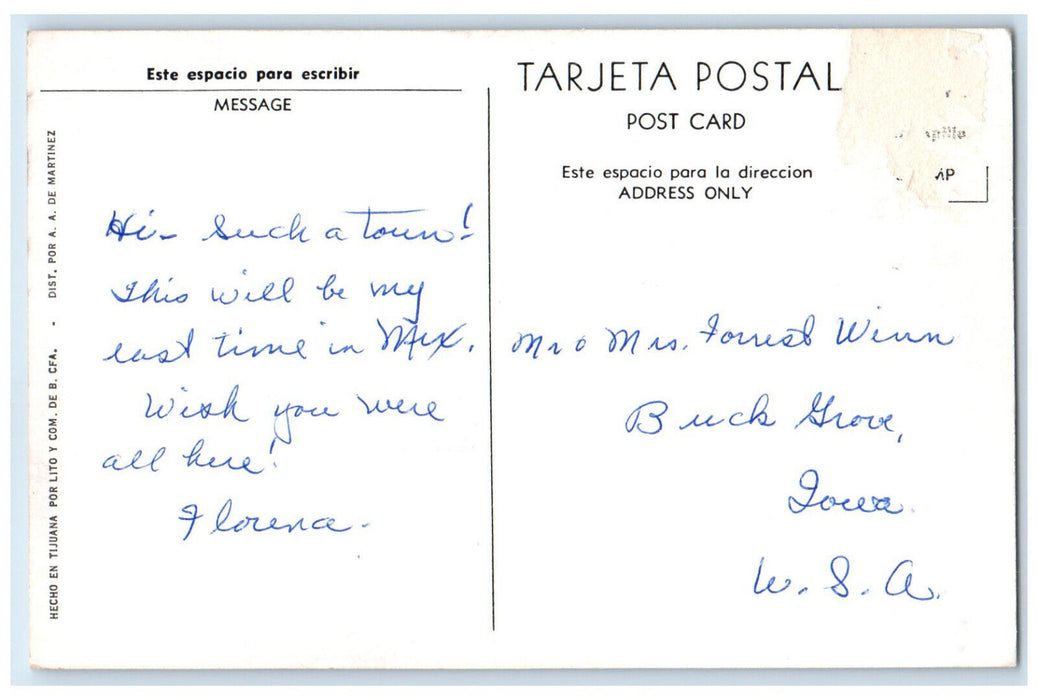 Este espacio para escribir
MESSAGE
Hi- Such a town!
This will be my
last time in Mex.
Wish you were
all here!
Florence.
HECHO EN TIJUANA POR LITO Y COM. DE B. CFA. - DIST. POR A. A. DE MARTINEZ
TARJETA POSTAL
POST CARD
Este espacio para la direccion
ADDRESS ONLY
Mr & Mrs. Forrest Winn
Buck Grove,
Iowa.
U. S. A.